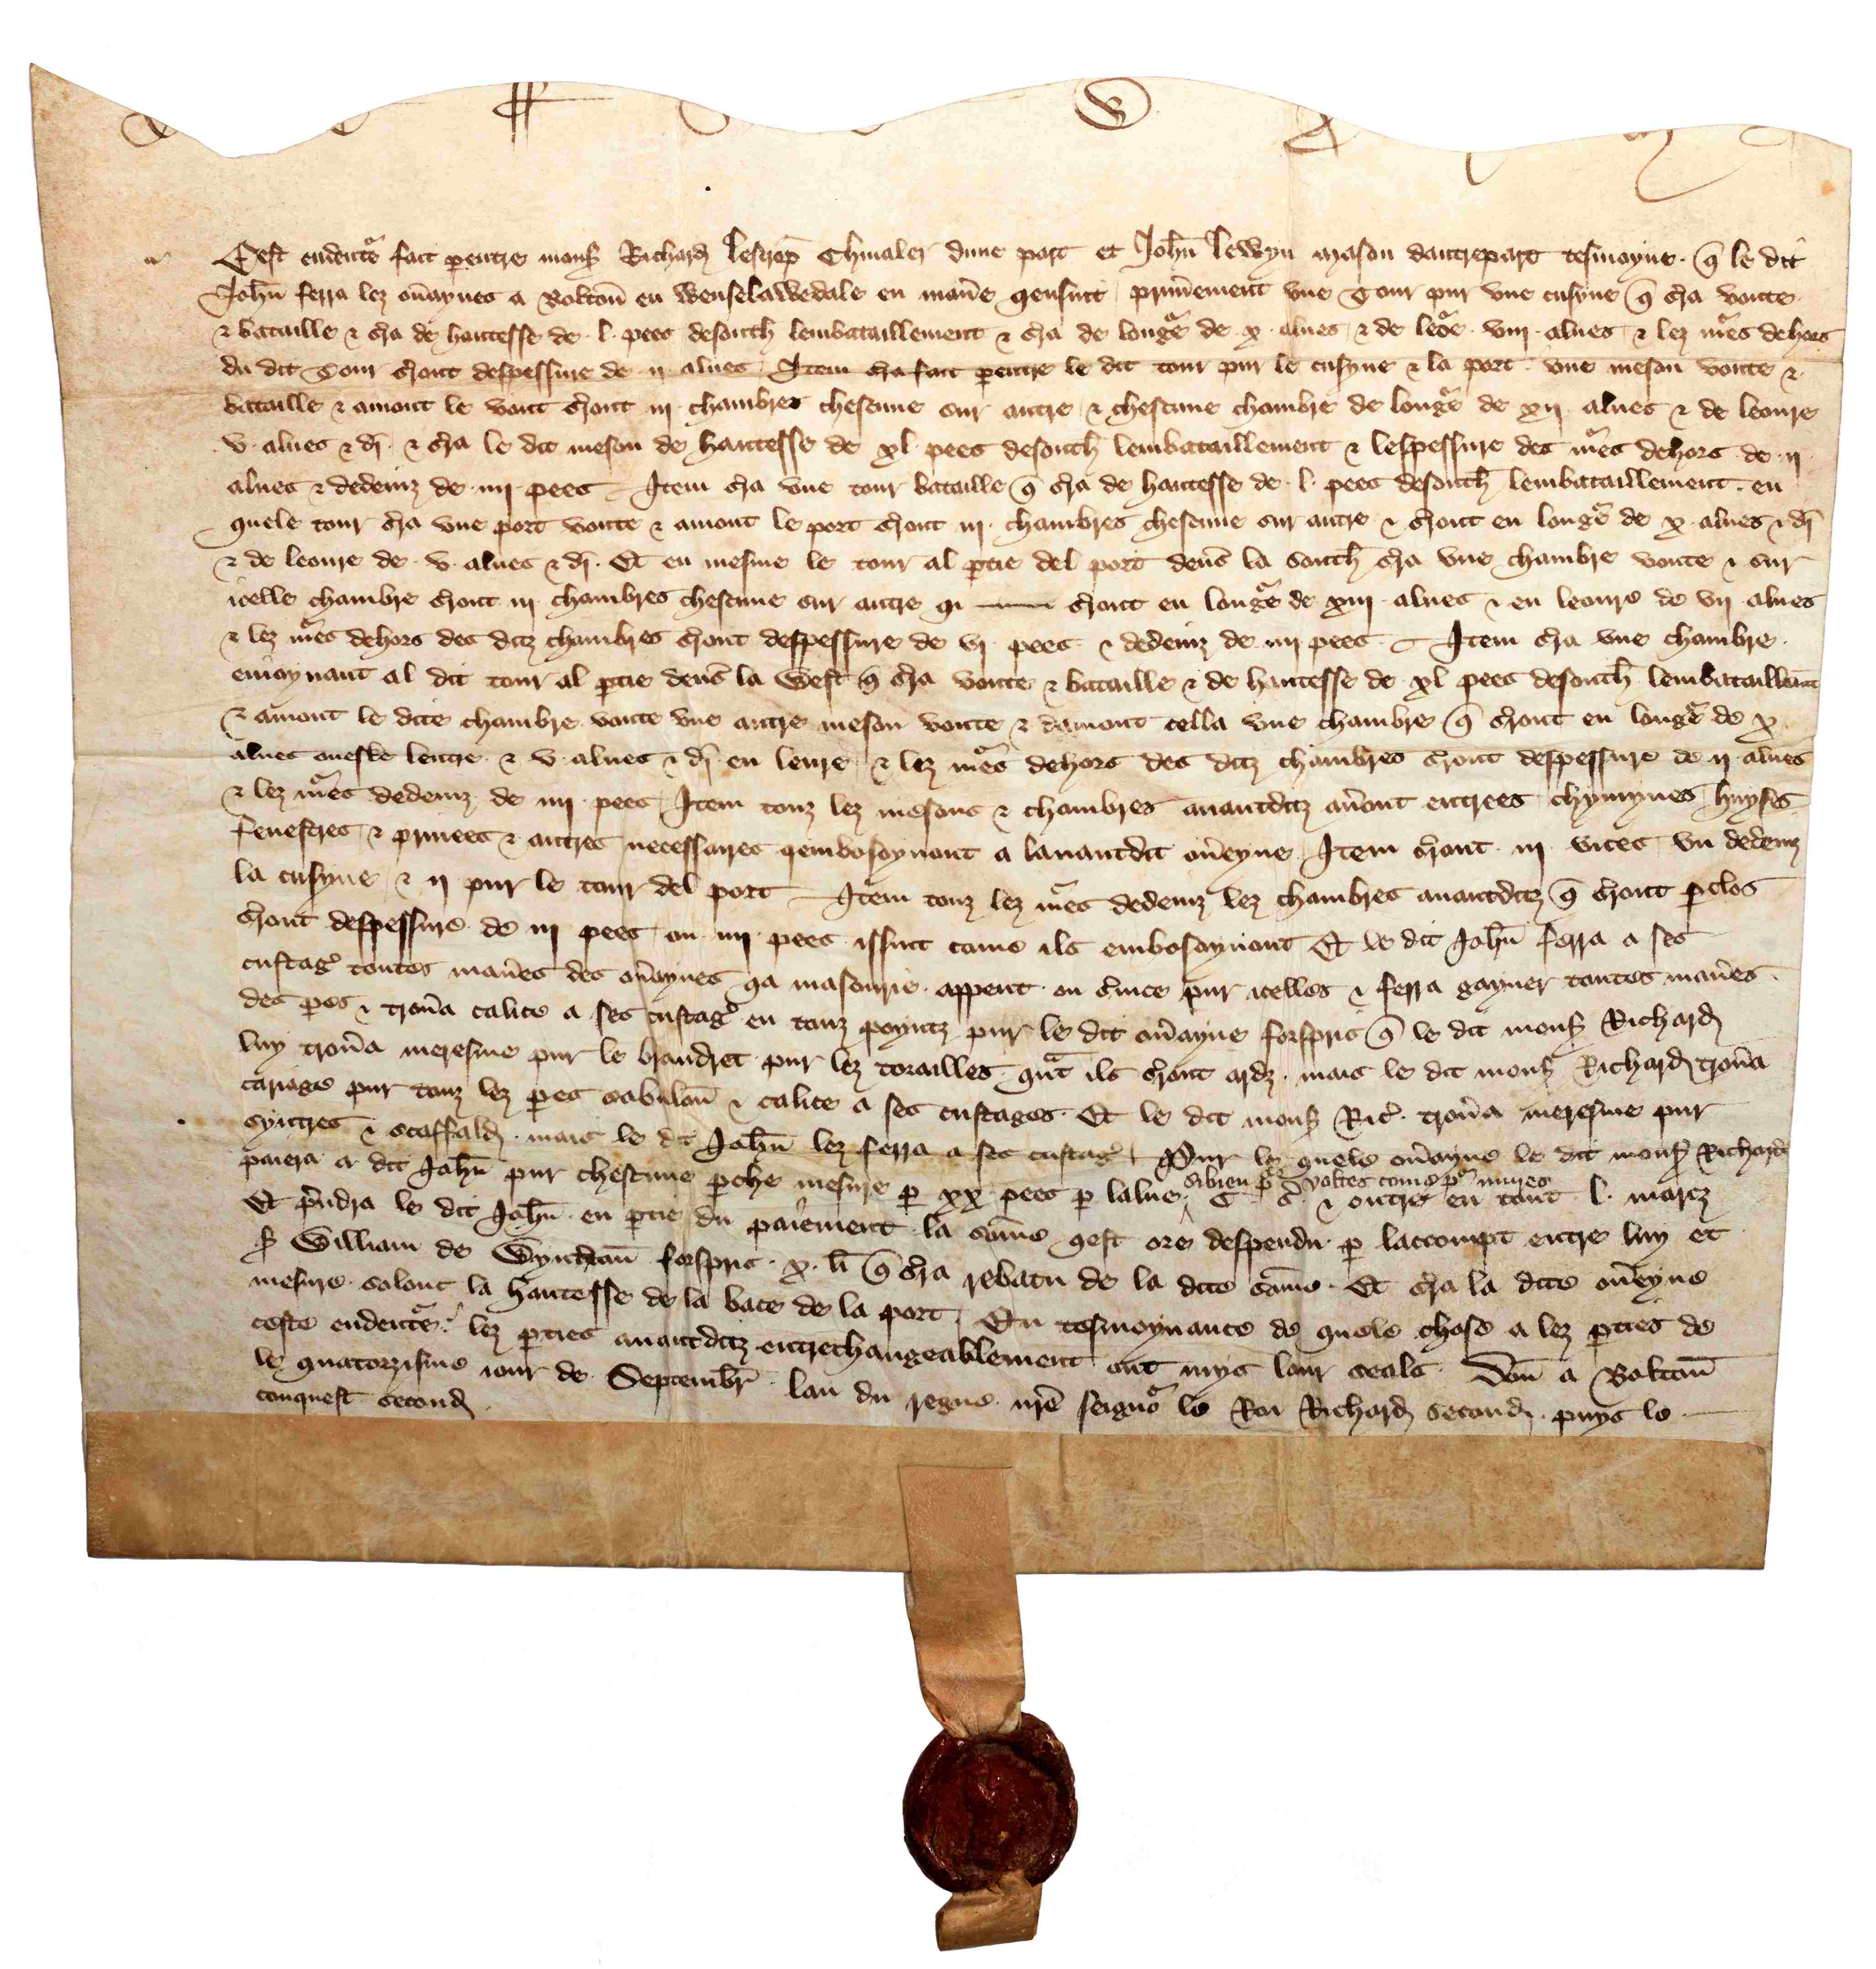 Cest endent'e fait p̲entre mons' Richard Lescrop̄ Chiualer dune part et Joħn Lewyn mason dautrepart tesmoigne q̄ le dit
Joħn ferra lez ou'aynes a Boltoū en Wenselawedale en man'e qensuit prim'ement vne Tour pur vne cusyne q̄ s'ra voute
⁊ bataille ⁊ s'ra de hautesse de ·l· pees desouth lembataillement ⁊ s'ra de longe͛ de ·x· alnes ⁊ de leoe͛ ·viij· alnes ⁊ lez mͬes dehors
du dit Tour s'ront despessure de ·ij· alnes Item s'ra fait p̲entre le dit tour pur le cusyne ⁊ la port vne meson voute ⁊
bataille ⁊ amont le vout s'ront iij chambres chescune sur autre ⁊ chescune chambre de longe͛ de xij alnes ⁊ de leoure
·v· alnes ⁊ dī ⁊ s'ra le dit meson de hautesse de xl pees desouth lembataillement ⁊ lespessure des mͬes dehors de ·ij·
alnes ⁊ dedeinz de ·iiij· pees Item s'ra vne tour bataille q̄ s'ra de hautesse de ·l· pees desouth lembataillement en
quele tour s'ra vne port voute ⁊ amont le port s'ront iij chambres chescune sur autre ⁊ s'ront en longe͛ de ·x· alnes ⁊ dī
⁊ de leoure de ·v· alnes ⁊ dī· Et en mesme le tour al p̲tie del port deu's la south s'ra vne chambre voute ⁊ sur
icelle chambre s'ront iij chambres chescune sur autre qi s'ront en longe͛ de xiij alnes ⁊ en leoure de vij alnes
⁊ lez mͬes dehors des ditz chambres s'ront despessure de vj pees ⁊ dedeinz de iiij pees Item s'ra vne chambre
enioynant al dit tour al p̲tie deu's la West q̄ s'ra voute ⁊ bataille ⁊ de hautesse de xl pees desouth lembataillem̄t
⁊ amont le dite chambre voute vne autre meson voute ⁊ damont cella vne chambre q̄ s'ront en longe͛ de ·x·
alnes oueske lentre ⁊ ·v· alnes ⁊ dī en leure ⁊ lez mͬes dehors des ditz chambres s'ront despessure de ij alnes
⁊ lez mͬes dedeinz de iiij pees Item touz lez mesons ⁊ chambres auantditz au'ont entrees chymynes huyses
fenestres ⁊ priuees ⁊ autres necessaires qembosoynont a lauantdit ou'eyne Item s'ront iij vices vn dedeinz
la cusyne ⁊ ij pur le tour del port Item touz lez mͬes dedeinz lez chambres auantditz q̄ s'ront p̲clos
s'ront despessure de iij pees ou iiij pees issuit come ils embosoynont Et le dit Joħn ferra a ses
custag' toutes man'es des ou'aynes qa masonrie appent ou s'uice pur icelles ⁊ ferra gayner toutes man'es
des p̲es ⁊ trou'a calice a ses custag' en touz poyntz pur le dit ou'ayne forspris q̄ le dit mons' Richard
luy trou'a meresme pur le brandret pur lez torailles qn̄t ils s'ront ardz· mais le dit mons' Richard trou'a
cariage pur touz lez p̲es sabuloū ⁊ calice a ses custages Et le dit mons' Ric' trou'a meresme pur
syntres ⁊ scaffald mais le dit Joħn lez ferra a ses custag' Pur le quele ou'ayne le dit mons' Richard
paiera a dit Joħn pur chescune p̲che mesure p̲ xx pees p̲ lalne sibien pͬ voltes come pͬ mures C s' ⁊ outre en tout l· marcz
Et p̄ndra le dit Joħn en p̲tie du paiement la som̄e qest ore despendu p̲ laccompt entre luy et
s' William de Wyntdoū forspris ·x· łi q̄ s'ra rebatu de la dite som̄e· Et s'ra la dite ou'eyne
mesure solont la hautesse de la bace de la port· En tesmoynance de quele chose a lez p̲ties de
ceste endent'e lez p̲ties auantditz entrechangeablement ont mys lour seals Don̄ a Boltoū
le quatorzisme iour de Septembr' lan du regne nr̄e seignoͬ le Roi Richard second puys le
conquest second